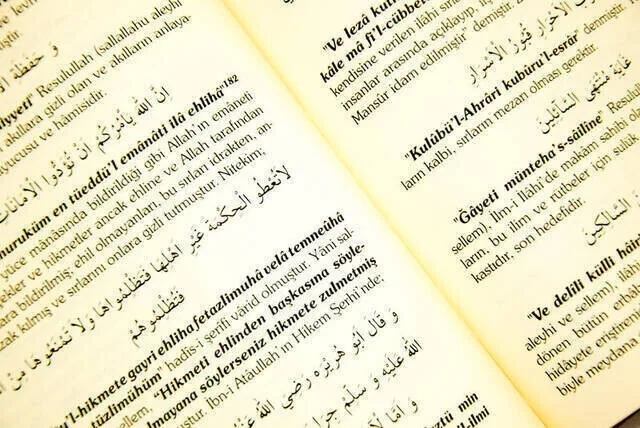 ve lev
وَ حَفَظَةُ
iyyeti" Resulullah (sallallahu aleyhi
akıllara gizli olan ve akılların anlaya-
uyucusu ve hâmisidir.
اِنَّ اللّٰهَ يَأْمُرُكُمْ اَنْ تُؤَدُّوا الْاَمَانَاتِ
murukùm en tüeddü'l emânâti ilâ ehlihâ"182
yüce mânâsında bildirildiği gibi Allah'ın emâneti
ve hikmetler ancak ehline ve Allah tarafından
lara bildirilmiş; ehil olmayanları, bu sırları idrakten, an-
zak kılmış ve sırlarını onlara gizli tutmuştur. Nitekim:
لَا تُعْطُوا الْحِكْمَةَ غَيْرَ اَهْلِهَا فَتَظْلِمُوهَا وَلَا تَمْنَعُوهَا مِنْ
فَتَظْلِمُوهُمْ
û'l-hikmete gayri ehliha fetazlimuhâ velâ temneûhâ
tüzlimûhüm" hadis-i şerifi vârid olmuştur. Yâni sal-
sellem, "Hikmeti ehlinden başkasına söyle-
mayana söylerseniz hikmete zulmetmiş
muştur. İbn-i Atâullah'ın Hikem Şerhi'nde:
وَ قَالَ اَبُو هُرَيْرَةَ رَضِيَ اللّٰهُ
اللّٰهُ عَلَيْهِ وَ سَلَّمَ
وَ اَمَّا
min
-ilmi
"Ve lezâ kull
kâle mâ fi'l-cübbe
kendisine verilen ilâhi sın
insanlar arasında açıklayıp, il
Mansûr idam edilmiştir" demiştir. Z
الْاَحْرَارِ قُبُورُ الْاَسْرَارِ
denmiştir.
"Kulûbü'l-Ahrâri kubûrü'l-esrâr"
ların kalbi, sırların mezarı olması gerektir.
غَايَةُ مُنْتَهَى السَّائِلِينَ
"Gâyeti münteha's-sâilîne" Resulull
sellem), İlm-i İlâhi'de makam sahibi ol
ların, bu ilim ve rütbeler için sülûk
kastıdır, son hedefidir.
السَّالِكِينَ
"Ve delili külli hâirî
aleyhi ve sellem), ilâh
dönen bütün erba
hidâyete eriştiren
biyle meydana